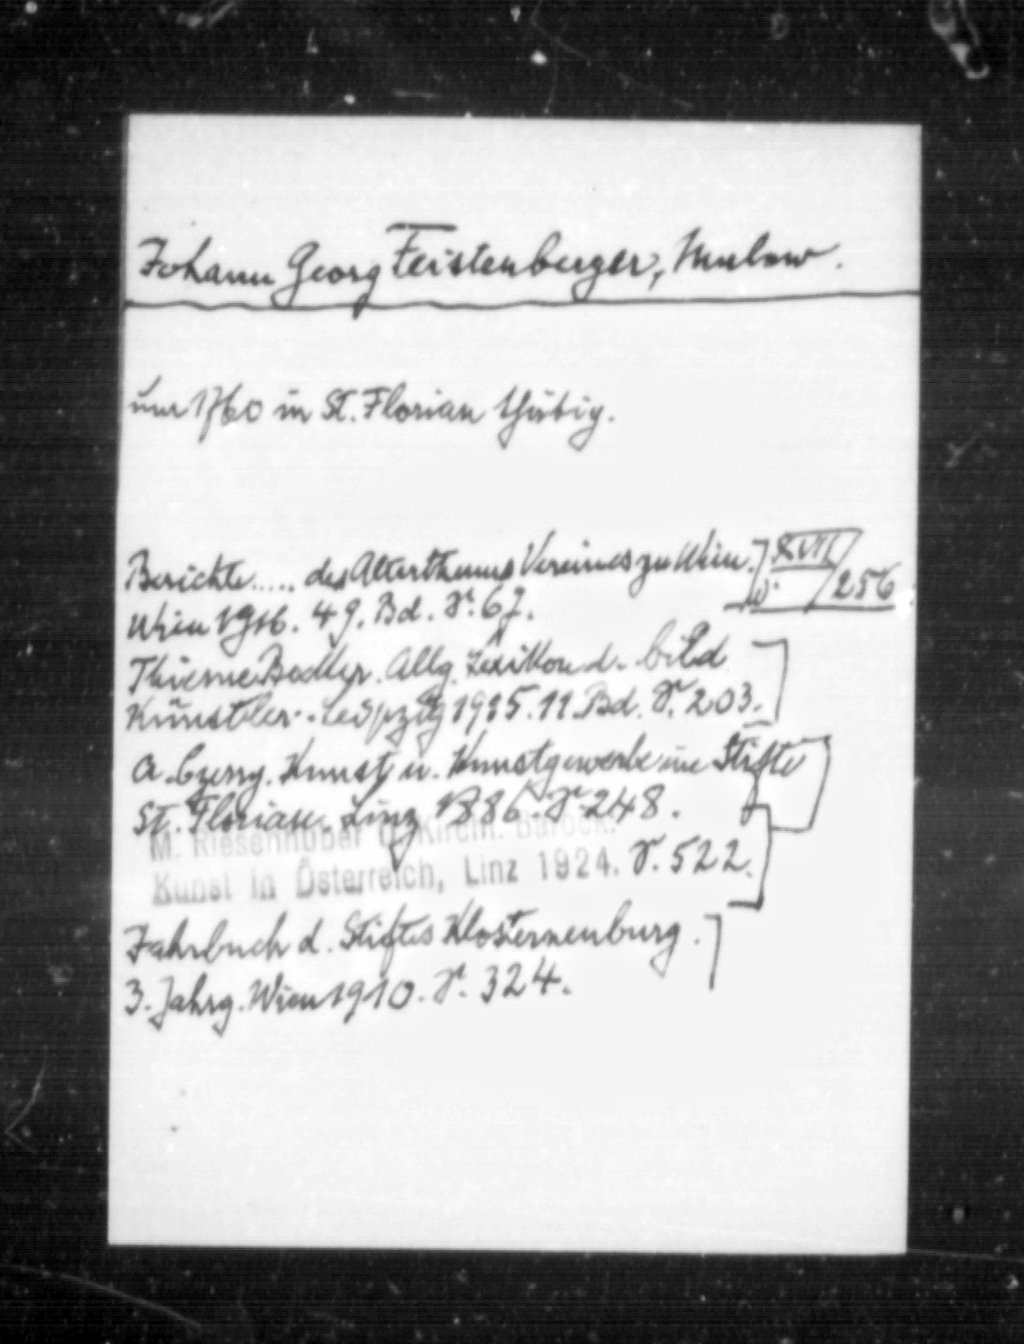 Johann Georg Feistenberger, Maler.
um 1760 in St. Florian thätig.
Berichte..... des Alterthums Vereines zu Wien. XVII/
Wien 1916. 49. Bd. S. 67. W. /256
Thieme Becker. Allg. Lexikon d. bild
Künstler. Leipzig 1915. 11. Bd. S. 203.
A. Czerny. Kunst u. Kunstgewerbe im Stifte
St. Florian. Linz 1886. S. 248.
M. Riesenhuber d. Kirchl. Barock.
Kunst in Österreich, Linz 1924. S. 522.
Jahrbuch d. Stiftes Klosterneuburg.
3. Jahrg. Wien 1910. S. 324.